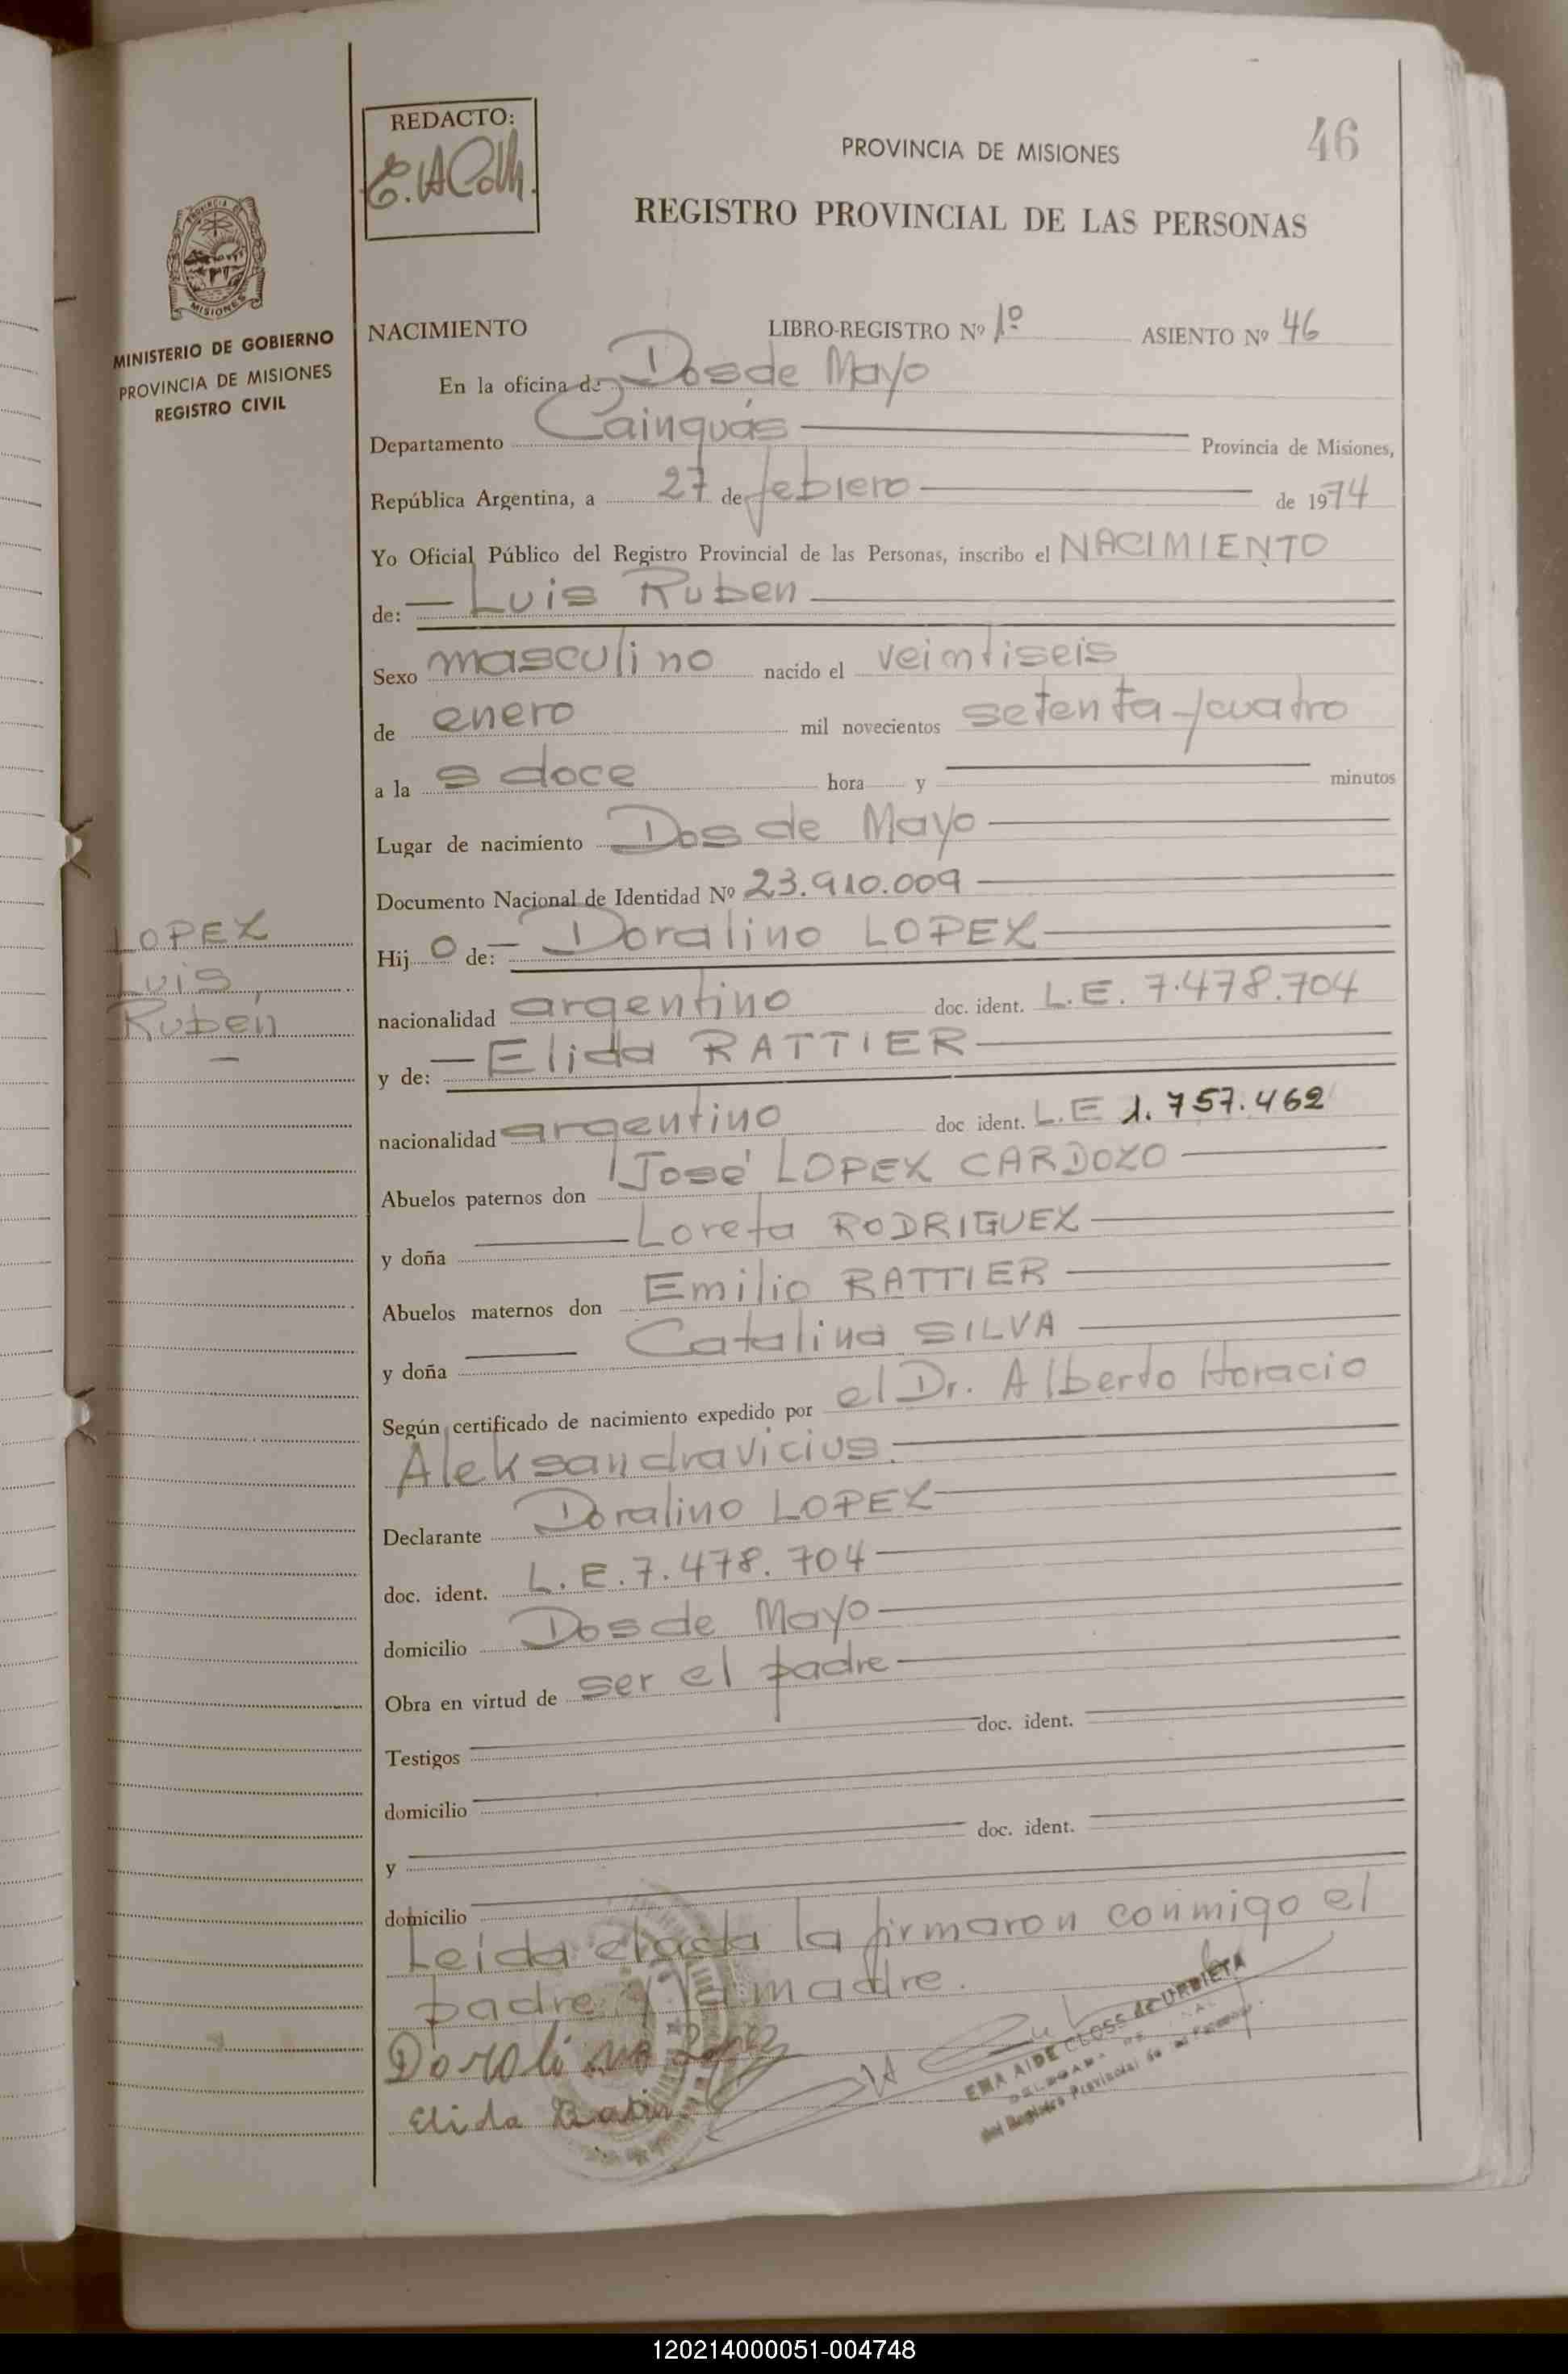 46
REDACTO:
PROVINCIA DE MISIONES
REGISTRO PROVINCIAL DE LAS PERSONAS
MINISTERIO DE GOBIERNO
PROVINCIA DE MISIONES
REGISTRO CIVIL
NACIMIENTO LIBRO-REGISTRO Nº 1º ASIENTO Nº 46
En la oficina de Dos de Mayo
Departamento Cainguás Provincia de Misiones,
República Argentina, a 27 de febrero de 1974
Yo Oficial Público del Registro Provincial de las Personas, inscribo el NACIMIENTO
de: Luis Ruben
Sexo masculino nacido el veintiseis
de enero mil novecientos setenta y cuatro
a la s doce hora y minutos
Lugar de nacimiento Dos de Mayo
Documento Nacional de Identidad Nº 23.910.009
LOPEZ
Luis,
Ruben
Hij o de: Doralino LOPEZ
nacionalidad argentino doc. ident. L.E. 7.478.704
y de: Elida RATTIER
nacionalidad argentino doc ident. L.E 1.757.462
Abuelos paternos don José LOPEZ CARDOZO
y doña Loreta RODRIGUEZ
Abuelos maternos don Emilio RATTIER
y doña Catalina SILVA
Según certificado de nacimiento expedido por el Dr. Alberto Horacio
Aleksandravicius.
Declarante Doralino LOPEZ
doc. ident. L.E.7.478.704
domicilio Dos de Mayo
Obra en virtud de ser el padre
Testigos doc. ident.
domicilio
y doc. ident.
domicilio
Leida el acta la firmaron conmigo el
padre y la madre.
Doralino Lopez
Elida
EMA AIDE CLOSS de URBIETA
DELEGADA
del Registro Provincial de las Personas
120214000051-004748